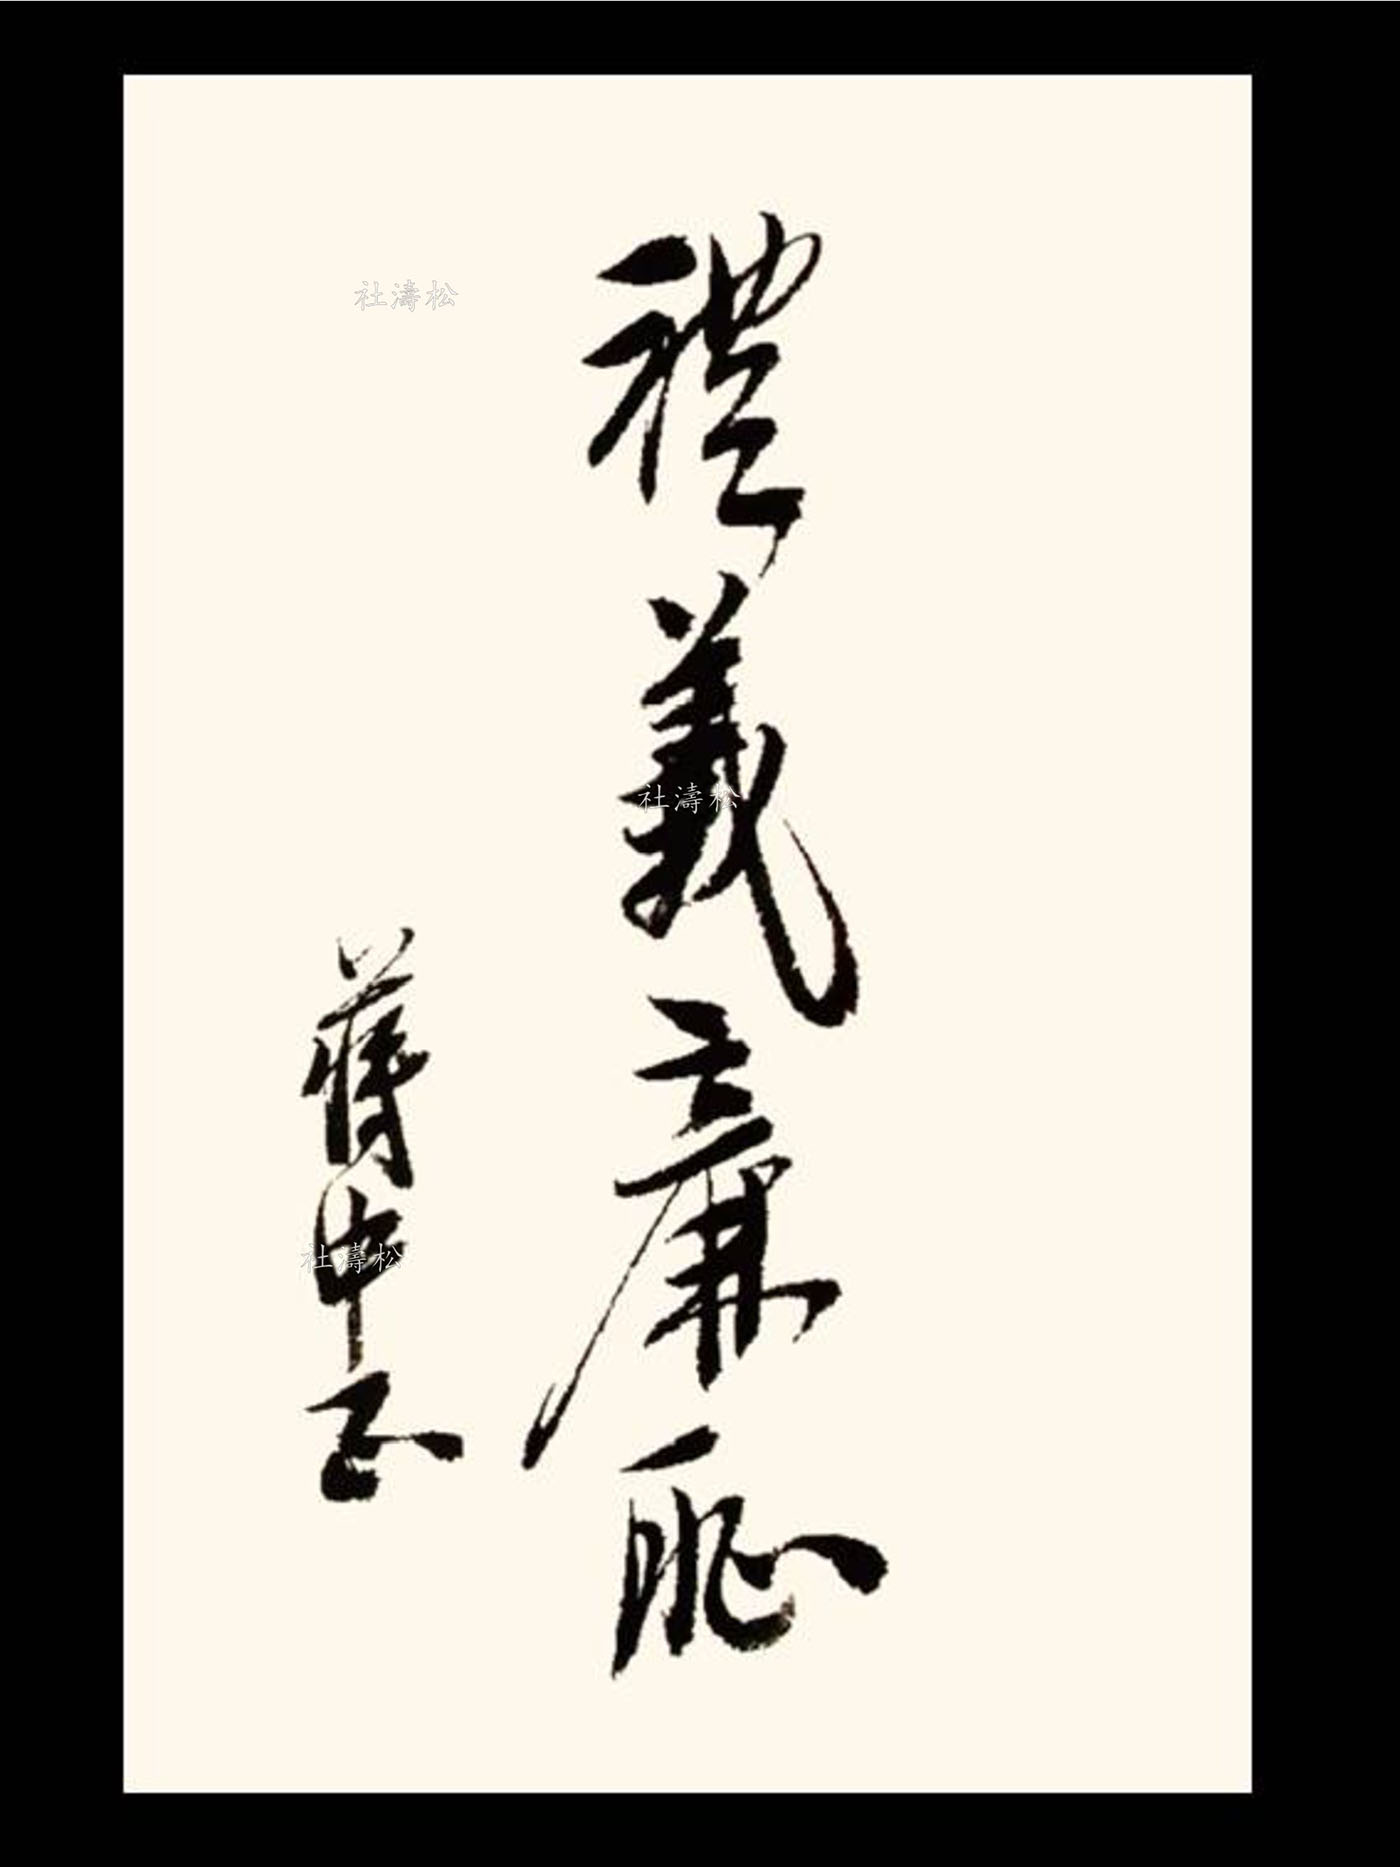 禮義廉恥
蔣中正
社濤松
社濤松
社濤松